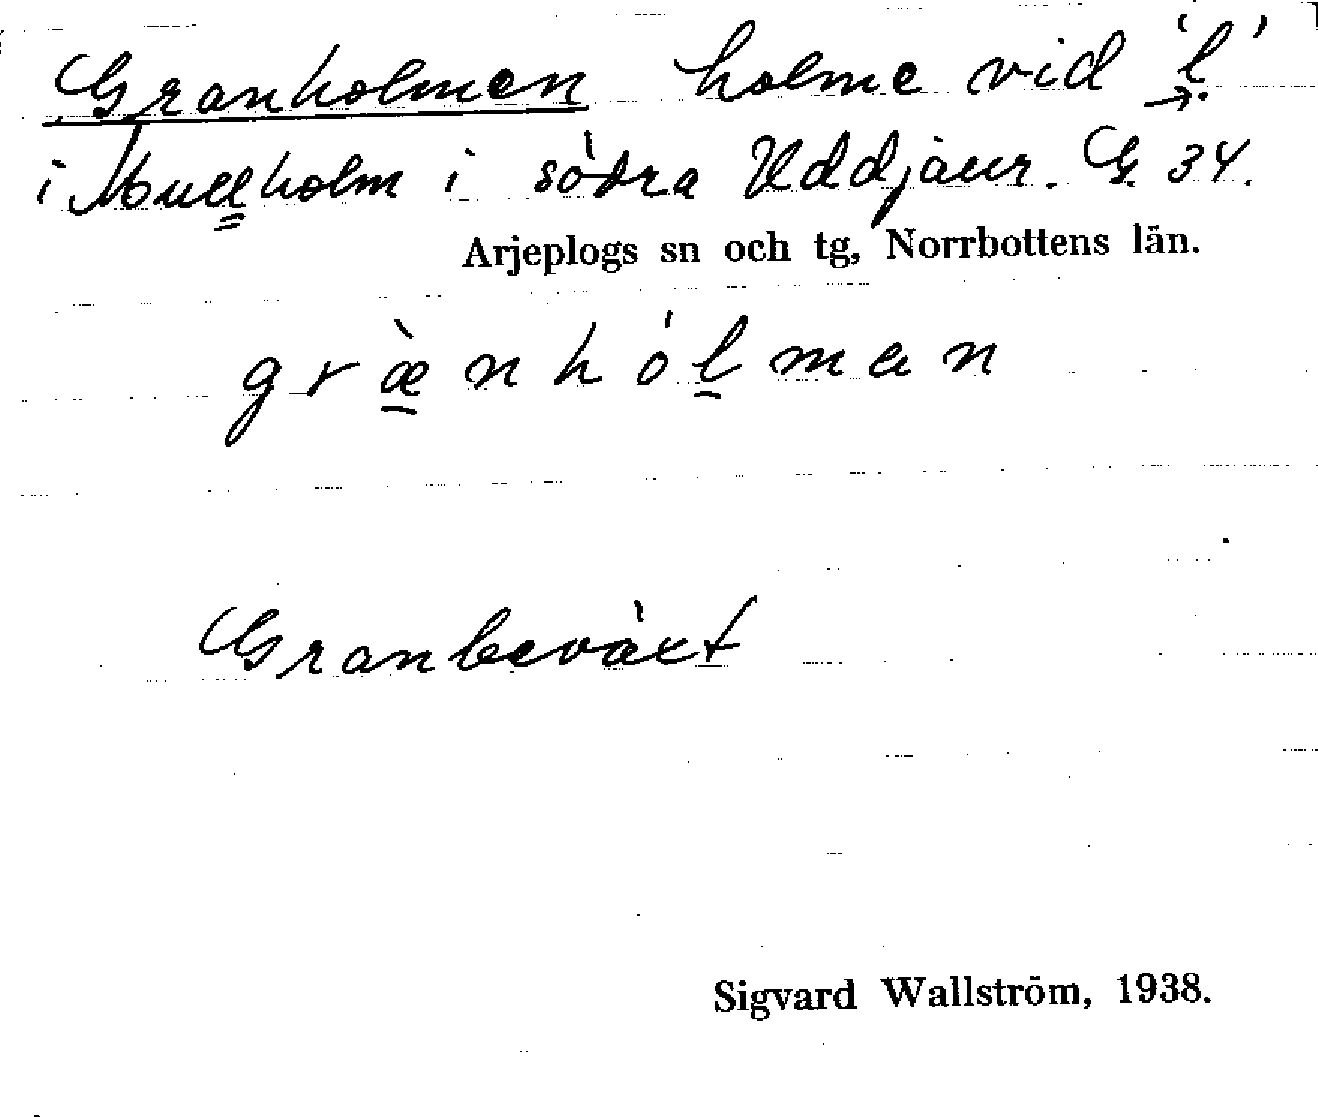 Granholmen holme vid 'l'
i Mullholm i södra Uddjaur. G. 34.
Arjeplogs sn och tg, Norrbottens län.
græ̀nhólman
Granbeväxt
Sigvard Wallström, 1938.